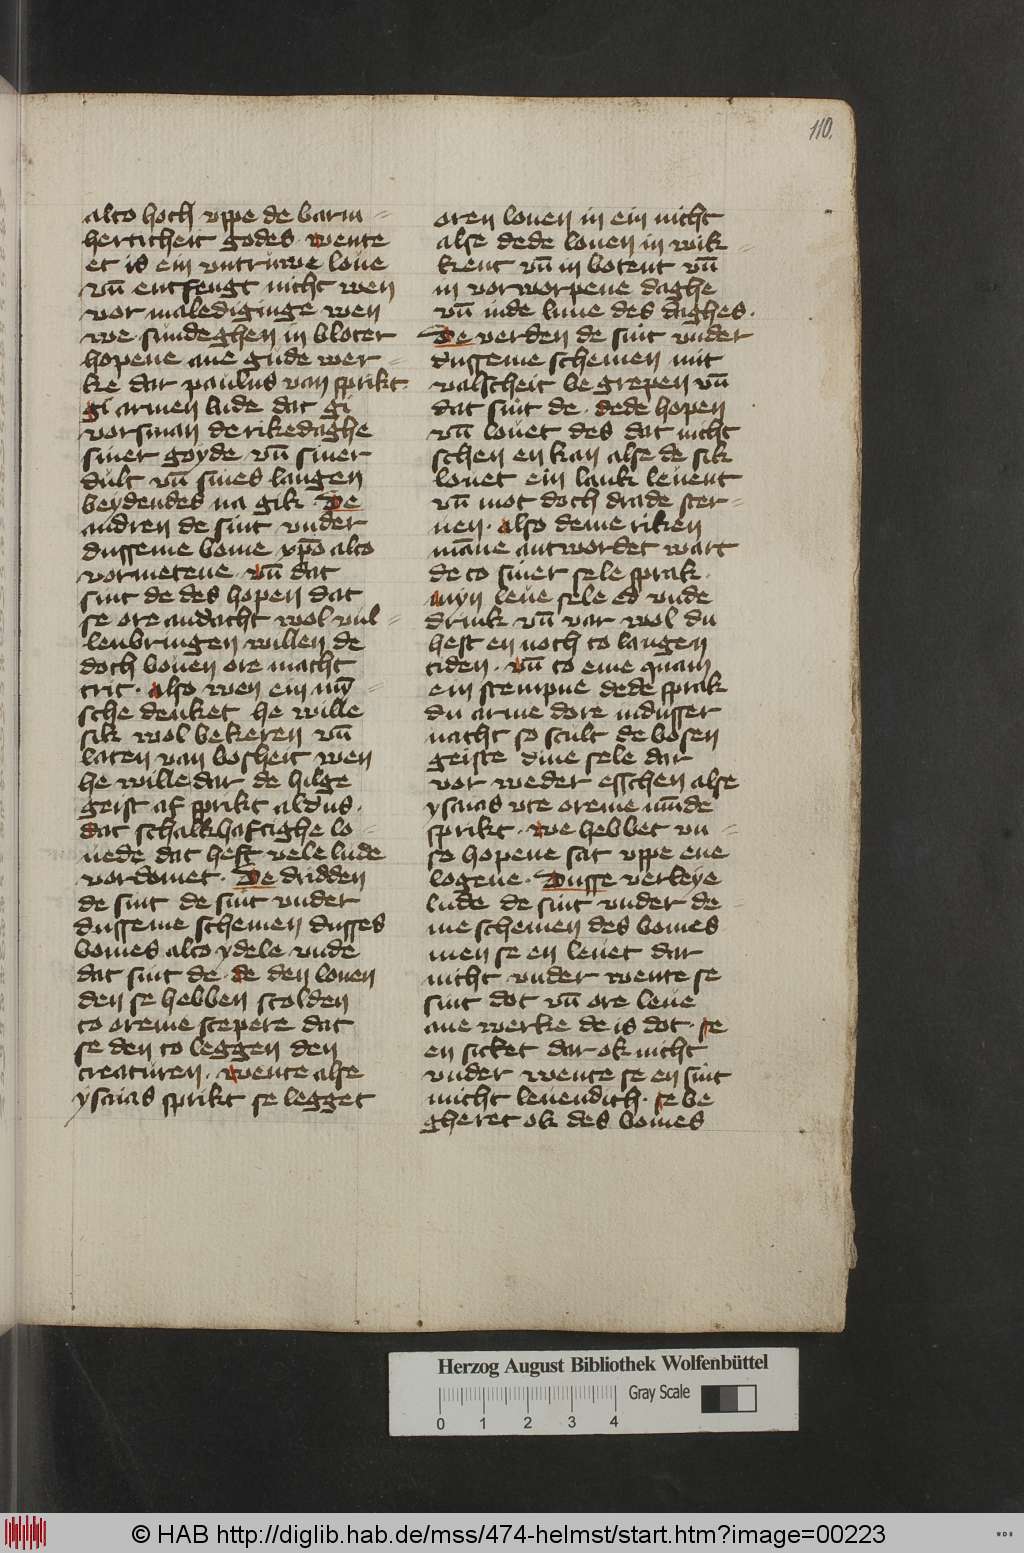 110.
alto hoch vppe de barm =
herticheit godes · wente
et is ein vntruwe loue
vn̄ entfengt nicht wen
vor maledighinge wen
we sundeghen in bloter
hopene ane gude wer =
ke dar paulus van sprikt
gi armen lude dat gi
vorsman de rikedaghe
siner goyde vn̄ siner
dult vn̄ sines langen
beydendes na gik De
andren de sint vnder
dusseme bome xp̄o alto
vormetene · vn̄ dat
sint de des hopen dat
se ore andacht wol vul =
lenbringen willen de
doch bouen ore macht
trit · also wen ein mī =
sche denket he wille
sik wol bekeren vn̄
laten van bosheit wen
he wille dar de hilge
geist af sprikt aldus ·
dat schalkhaftighe lo =
uede dat heft vele lude
vordomet · De dridden
de sint de sint vnder
dusseme schemen dusses
bomes alto ydele vnde
dat sint de · de den louen
den se hebben scolden
to oreme scepere dat
se den to leggen den
creaturen · wente alse
ysaias sprikt se legget
oren louen in ein nicht
alse dede louen in wik =
kent vn̄ in botent vn̄
in vorworpene daghe
vn̄ inde lune des daghes ·
De verden de sint vnder
dusseme schemen mit
valscheit begrepen vn̄
dat sint de · dede hopen
vn̄ louet des dat nicht
schen en kan alse de sik
louet ein lank leuent
vn̄ mot doch drade ster =
uen · also deme riken
māne antwordet wart
de to siner sele sprak ·
myn leue sele ed vnde
drink vn̄ var wol du
hest en noch to langen
tiden · vn̄ to eme quam
ein stempne dede sprak
du arme dore indusser
nacht so scult de bosen
geiste dine sele dar
vor weder esschen alse
ysaias vte oreme mūde
sprikt · we hebbet vn =
se hopene sat vppe ene
logene · Dusse verleye
lude de sint vnder de =
me schemen des bomes
men se en leuet dar
nicht vnder wente se
sint dot vn̄ ore leue
ane werke de is dot · se
en sittet dar ok nicht
vnder wente se en sint
nicht leuendich · se be
gheret ok des bomes
Herzog August Bibliothek Wolfenbüttel
Gray Scale
0 1 2 3 4
© HAB http://diglib.hab.de/mss/474-helmst/start.htm?image=00223